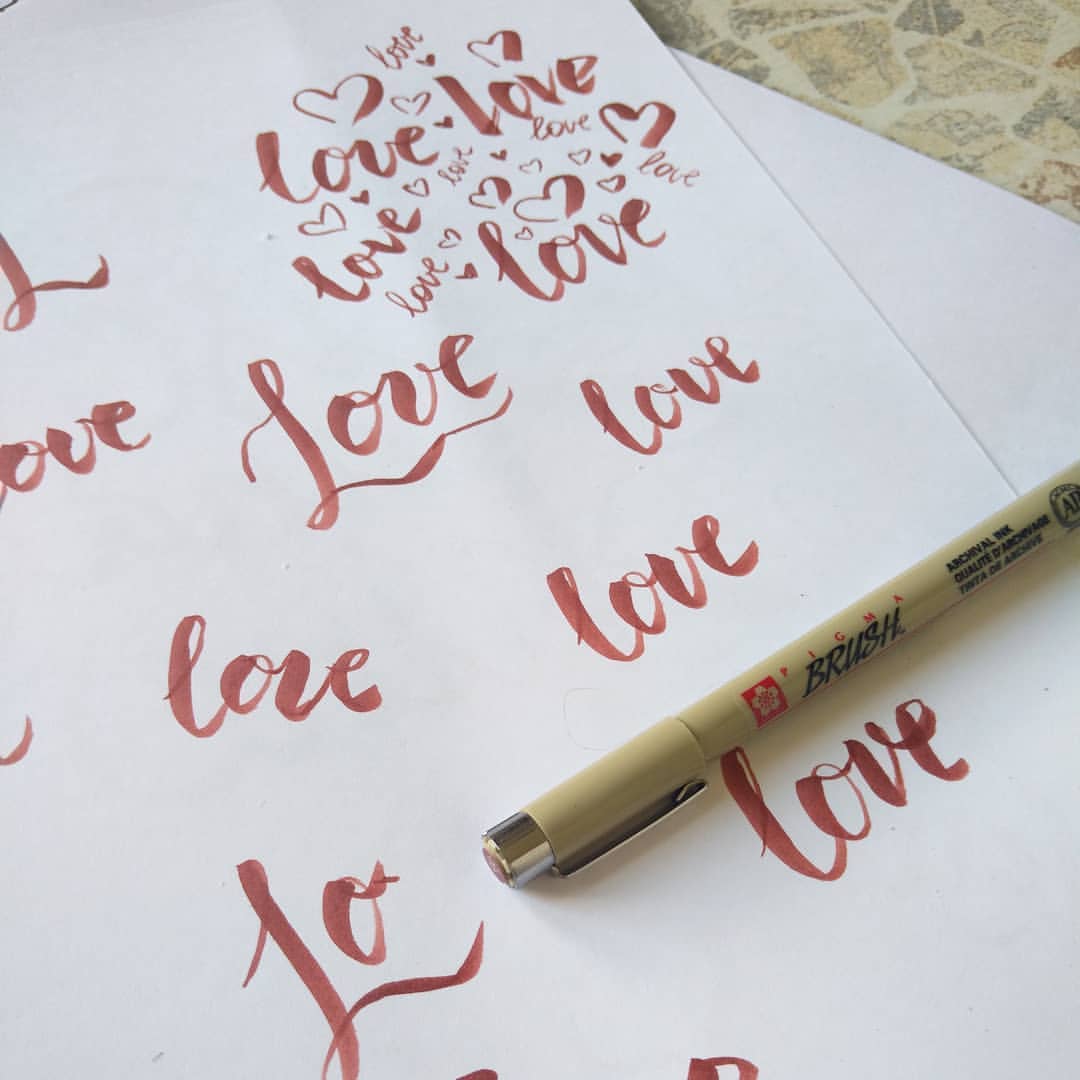 love
love
love
love
love
love
love
love
love
L
Love
love
ove
love
love
PIGMA
BRUSH
ARCHIVAL INK
QUALITE D'ARCHIVAGE
TINTA DE ARCHIVE
love
Lo